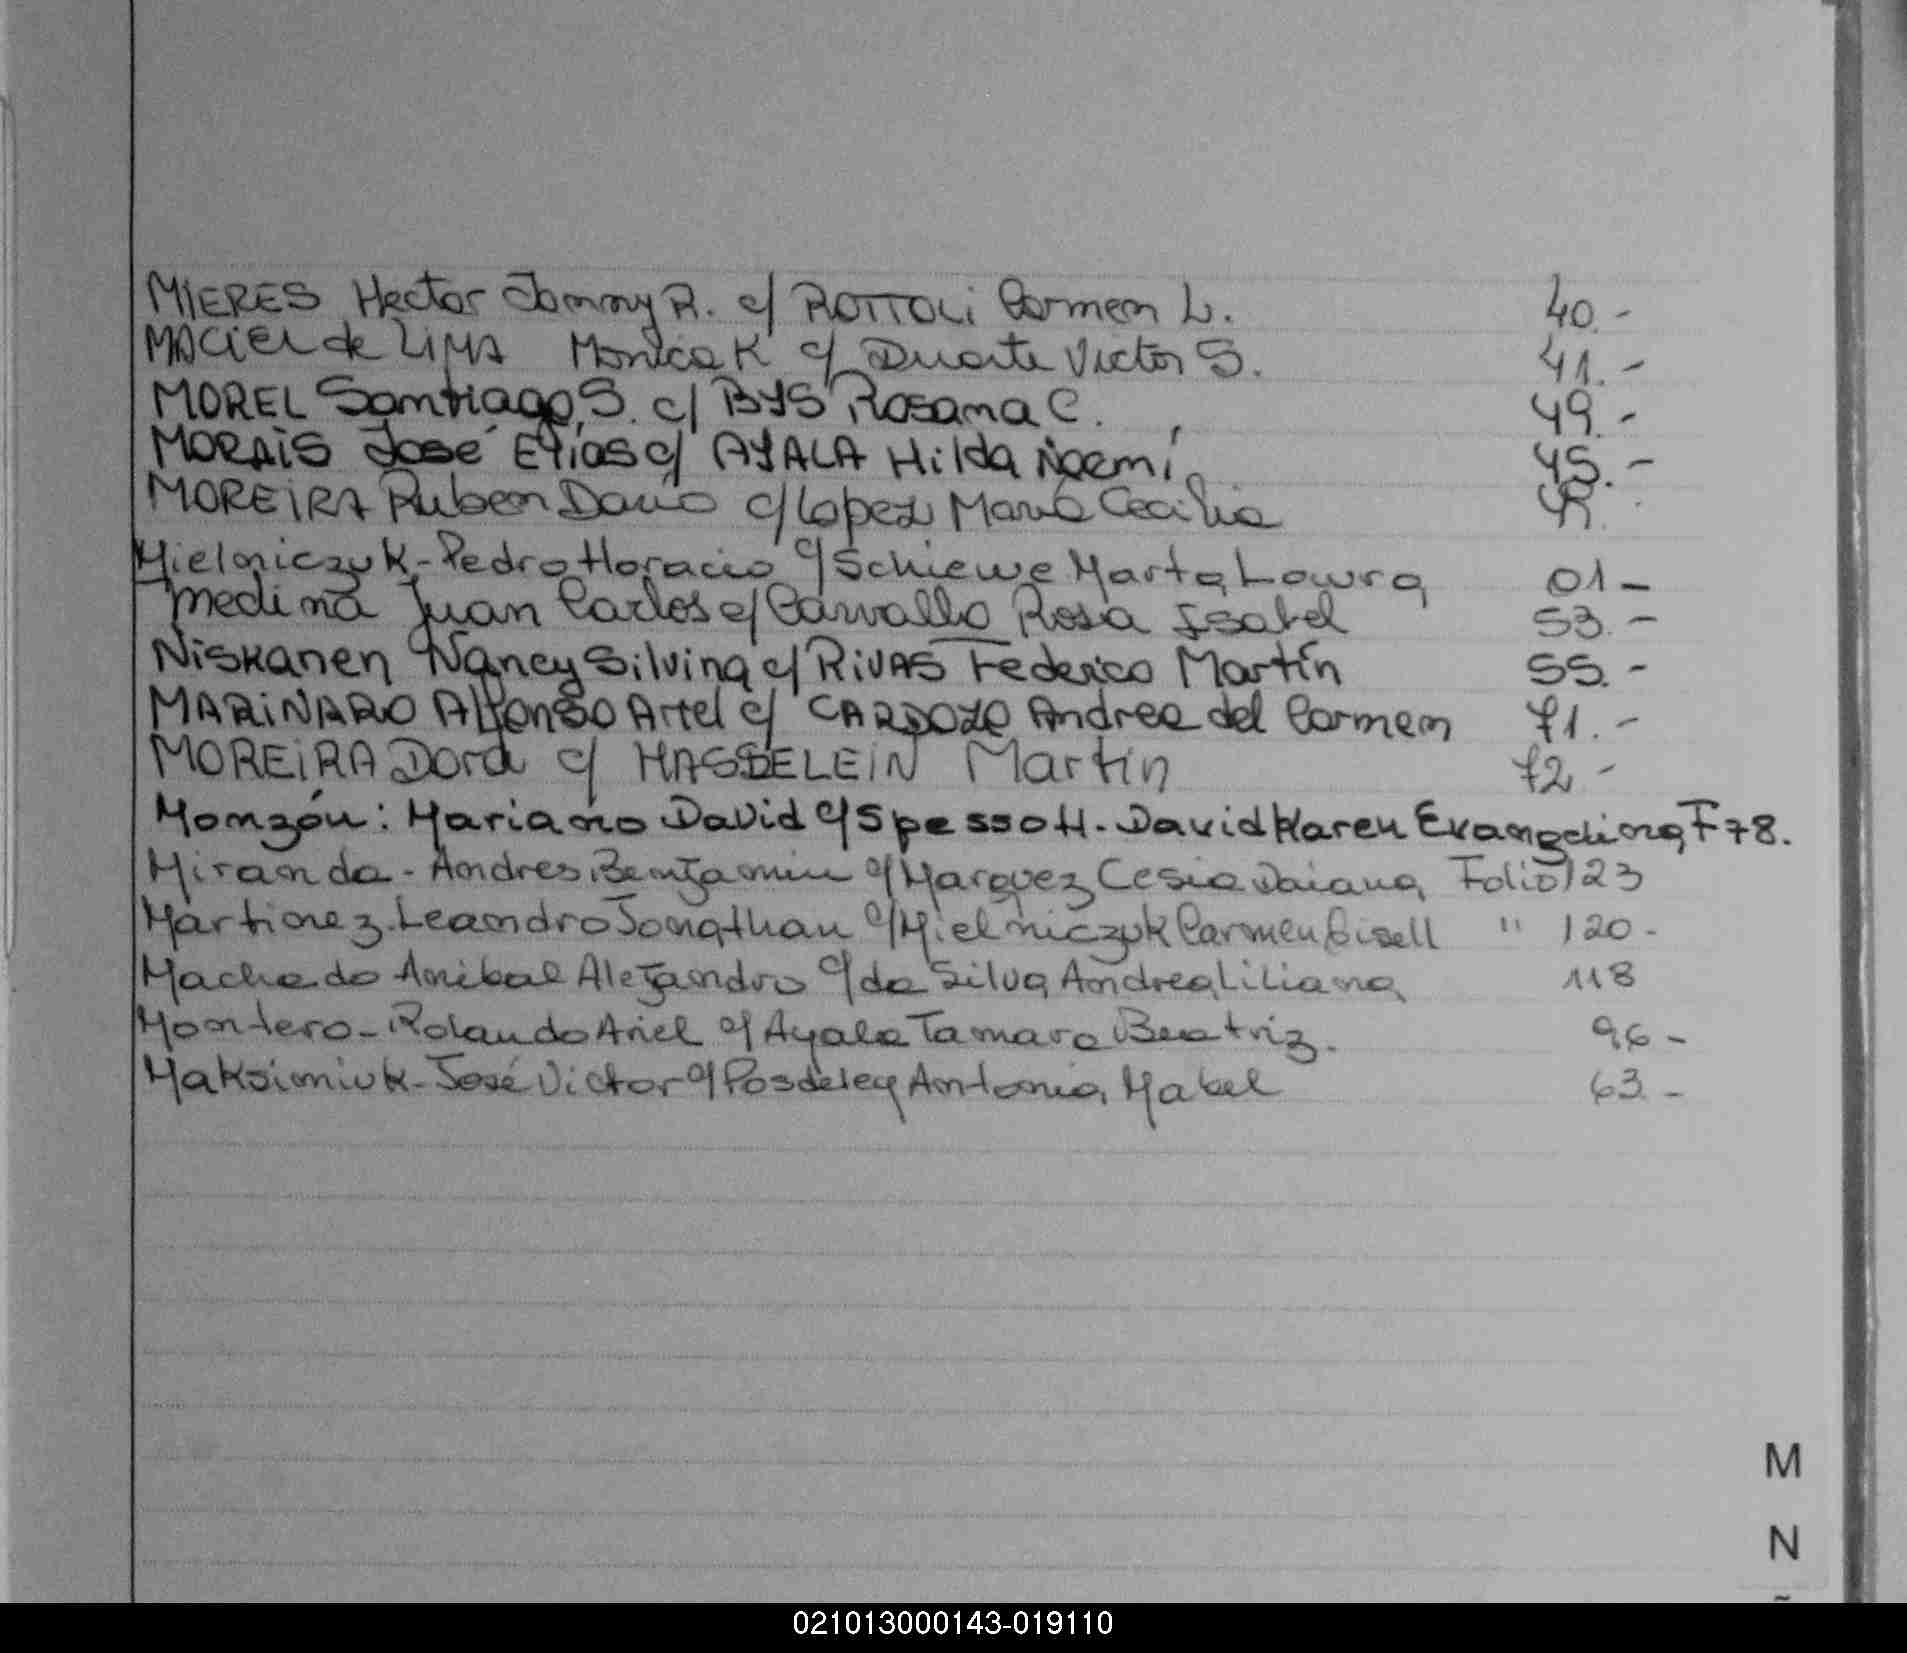 MIERES Hector Jommy R. c/ ROTTOLi Carmen L. 40.-
MACiEL de LIMA Monica K c/ Duarte Victor S. 41.-
MOREL Santiago S. c/ BYS Rosana C. 49.-
MORAiS José Elias c/ AYALA Hilda Noemí 45.-
MOREiRA Ruben Dario c/ Lopez María Cecilia
Mielniczuk-Pedro Horacio c/ Schiewe Marta Lowra 01-
Medina Juan Carlos c/ Carvallo Rosa Isabel 53.-
Niskanen Nancy Silvina c/ RiVAS Federico Martín 55.-
MARiNARO Alfonso Ariel c/ CARDOZO Andrea del Carmen 71.-
MOREiRA Dora c/ HASSELEiN Martín 72.-
Monzón: Mariano David c/ Spessott-David Karen Evangelina F 78.
Miranda-Andres Benjamin c/ Marquez Cesia Daiana, Folio 123
Martinez Leandro Jonathan c/ Mielniczuk Carmen Gisell " 120-
Machado Anibal Alejandro c/ da Silva Andrea Liliana 118
Montero-Rolando Ariel c/ Ayala Tamara Beatriz. 96-
Maksimiuk-José Victor c/ Posdeley Antonia Mabel 63-
M
N
021013000143-019110